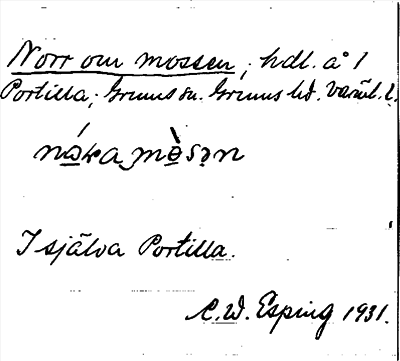 Norr om mossen, hdl. å 1
Portilla, Grums sn. Grums hd. Värml. l.
I själva Portilla.
C. W. Esping 1931.